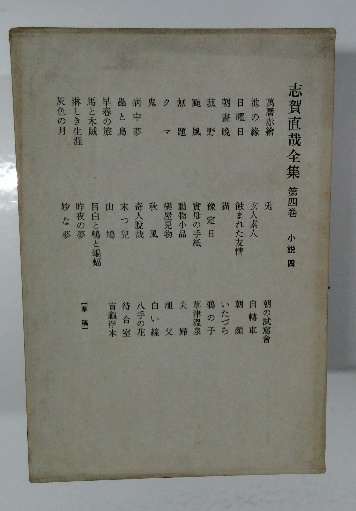 志賀直哉全集 第四卷 小説 四
萬曆赤繪
池の緣
日曜日
朝晝晩
菰野
颱風
無題
クマ
鬼
病中夢
蟲と鳥
早春の旅
馬と木賊
淋しき生涯
灰色の月
兎
玄人素人
蝕まれた友情
猫
豫定日
實母の手紙
動物小品
樂屋見物
秋風
奇人脫哉
末つ兒
山鳩
目白と鵯と蝙蝠
昨夜の夢
妙な夢
朝の試寫會
自轉車
朝顏
いたづら
鴉の子
草津溫泉
夫婦
祖父
白い線
八手の花
待合室
盲龜浮木
〔草稿〕